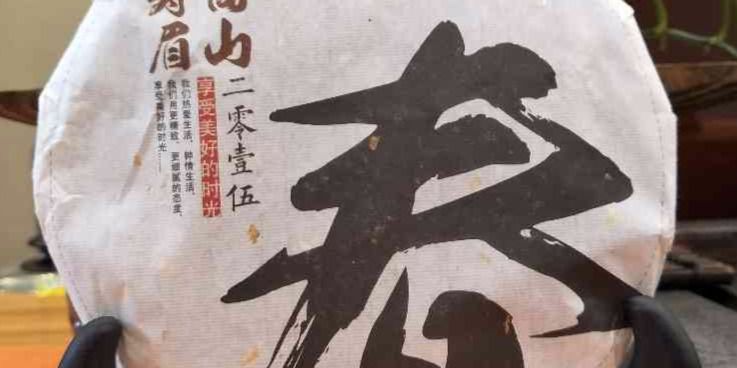 高山
寿眉
二零壹伍
享受美好的时光
我们热爱生活，钟情生活，
我们用更精致、更细腻的态度，
享受美好的时光……
春